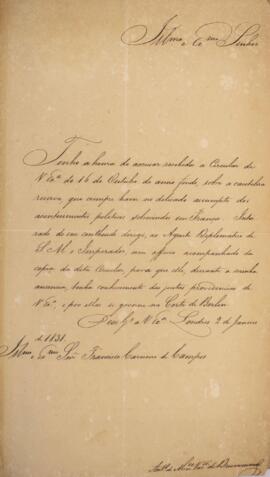 Illmo e Exmo Senhor
Tenho a honra de accusar recebida a Circular de
V Exa de 16 de Outubro do anno findo, sobre a cautelosa
reserva que cumpre haver no delicado assumpto dos
acontecimentos politicos sobrevindos em França. Intei-
rado do seu contheudo dirigi, ao Agente Diplomatico de
S M o Imperador, um officio acompanhado da
copia da dita Circular, para que elle, durante a minha
ausencia, tenha conhecimento das justas providencias de
V Exa, e por ellas se governe na Corte de Berlin
Deos Ge a V Exa. Londres 2 de Janeiro
de 1831.
Illmo e Exmo Snr Francisco Carneiro de Campos
Anto de Mens Vasco de Drummond